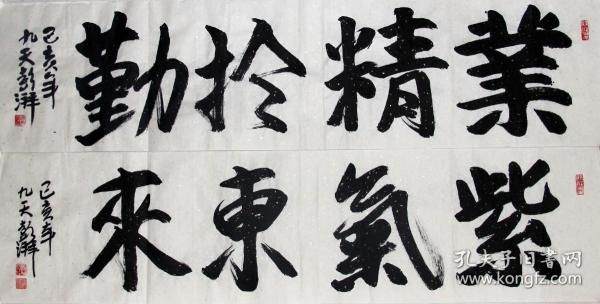 業精於勤
己亥年
九天彭湃
紫氣東來
己亥年
九天彭湃
孔夫子旧书网
www.kongfz.com